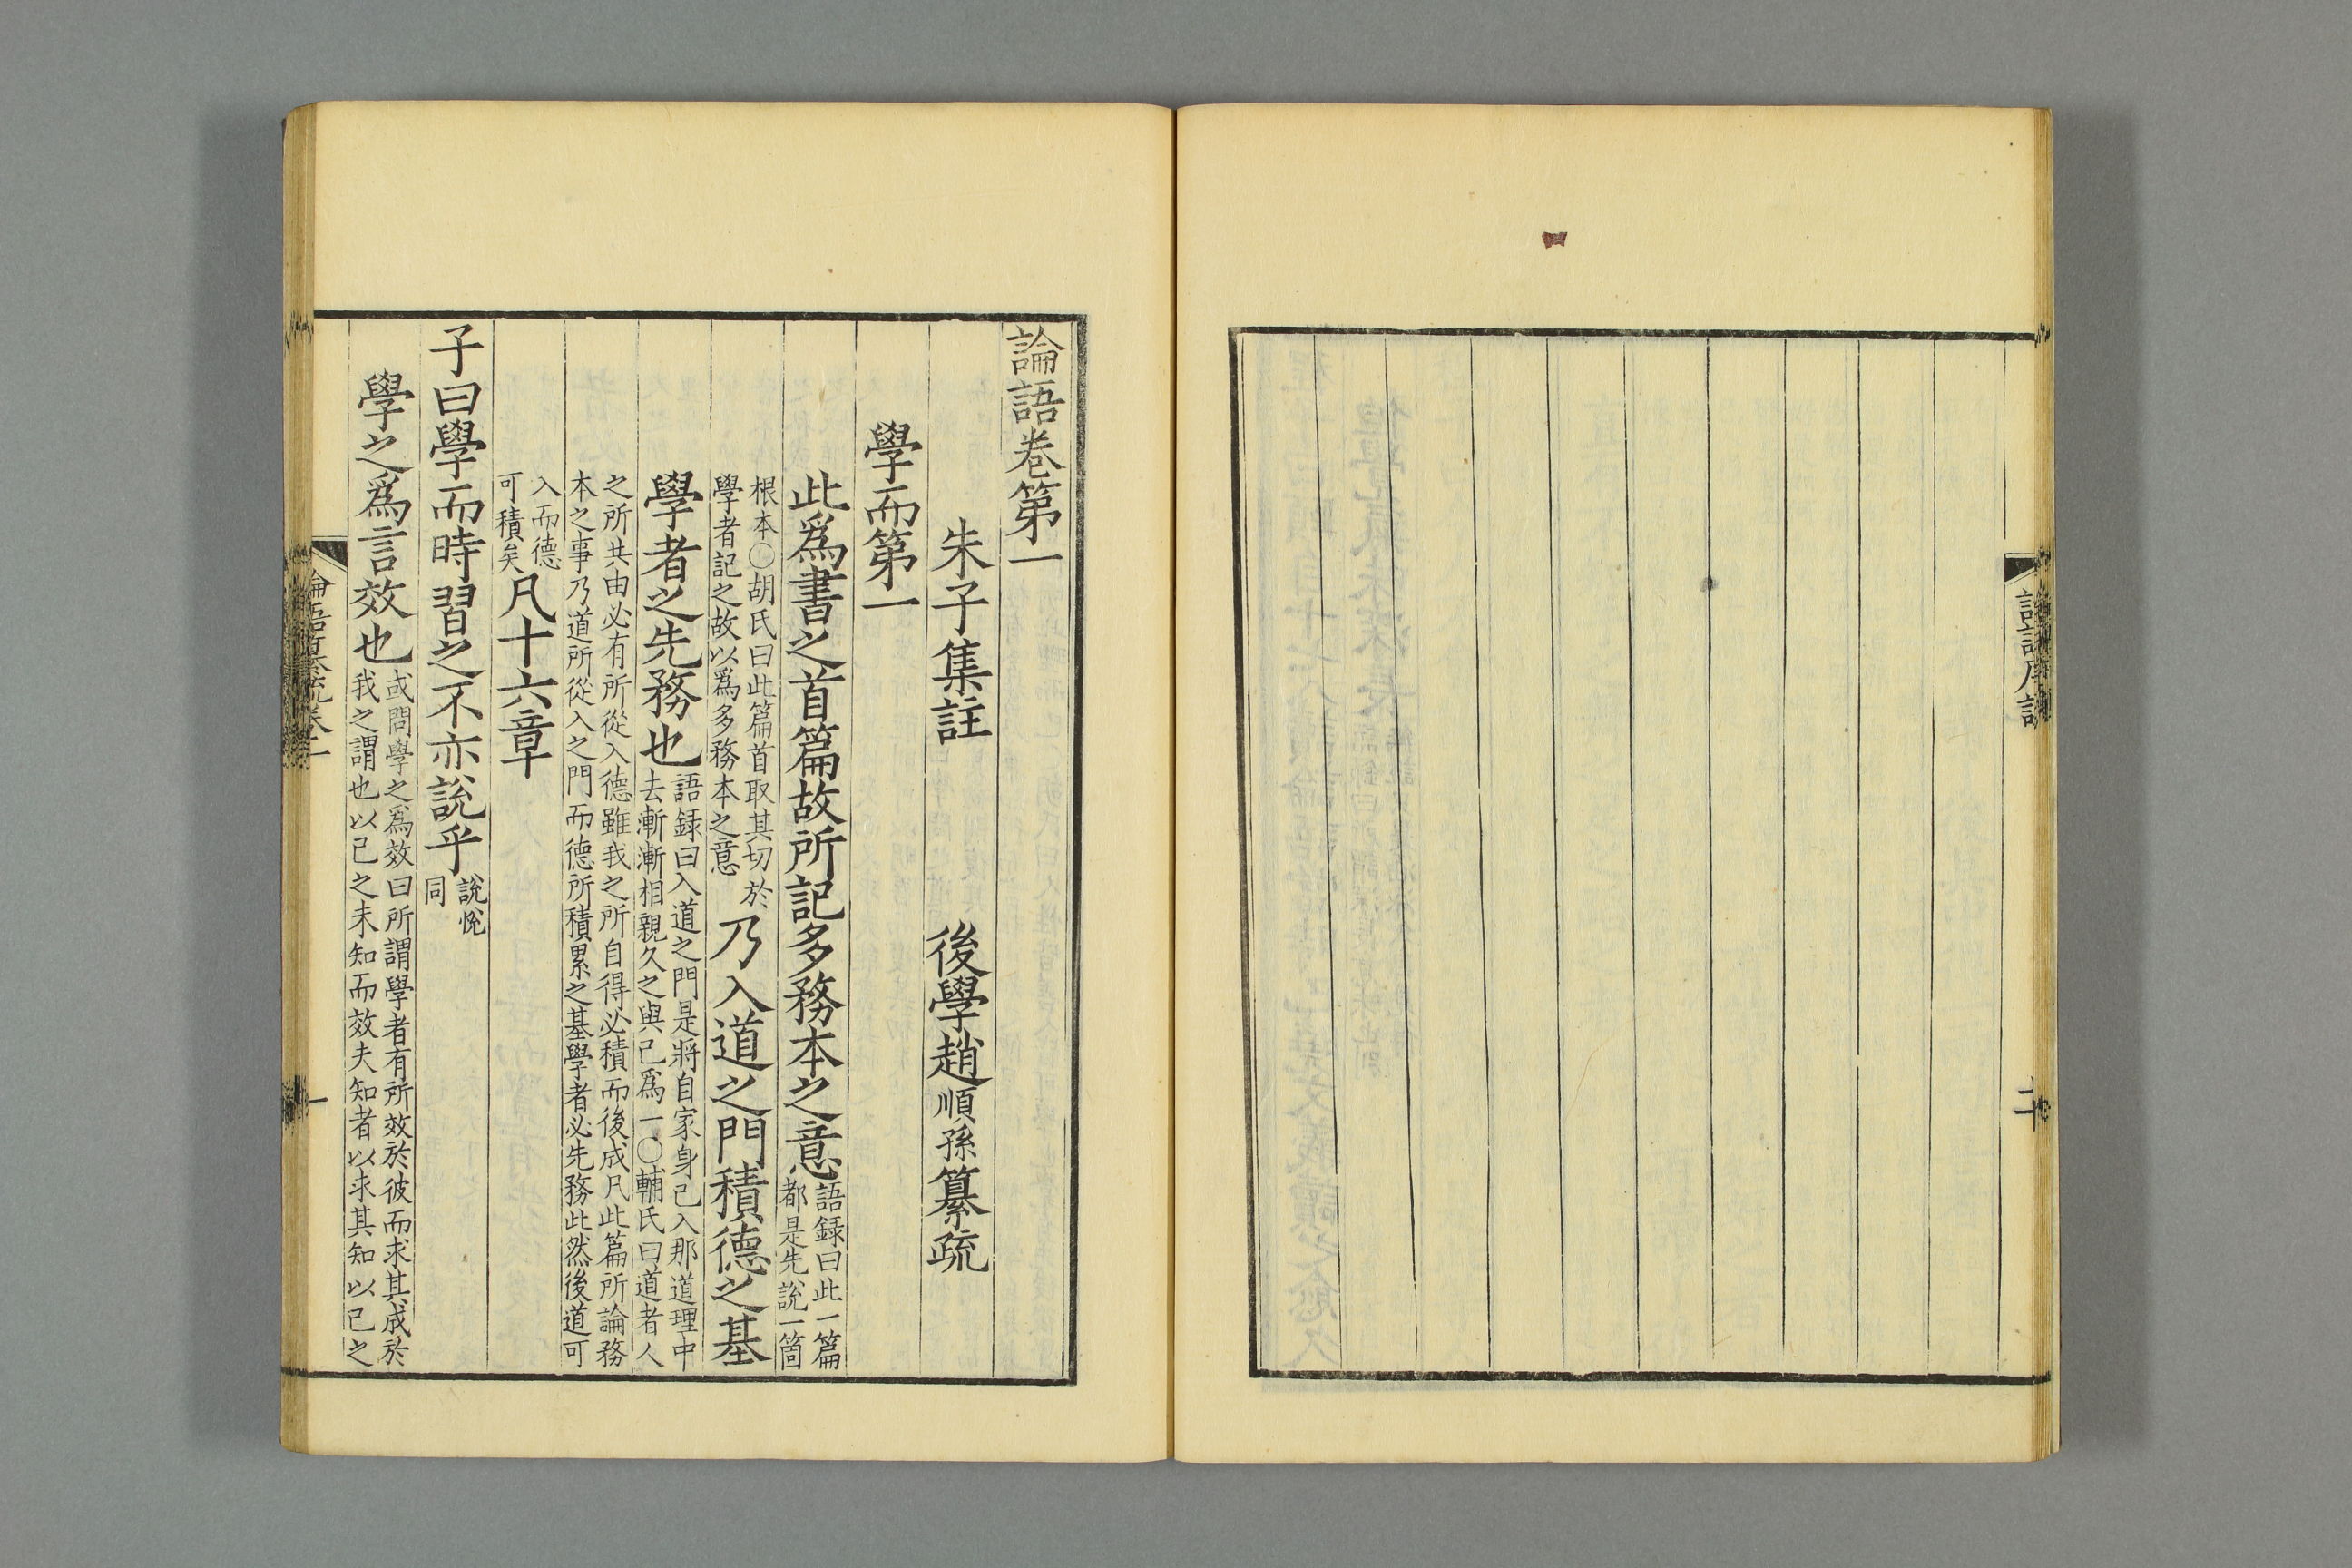 論語卷第一
朱子集註 後學趙順孫纂疏
學而第一
此爲書之首篇故所記多務本之意語録曰此一篇都是先說一箇
根本○胡氏曰此篇首取其切於學者記之故以爲多務本之意乃入道之門積德之基
學者之先務也語録曰入道之門是將自家身已入那道理中去漸漸相親久之與已爲一○輔氏曰道者人
之所共由必有所從入德雖我之所自得必積而後成凡此篇所論務本之事乃道所從入之門而德所積累之基學者必先務此然後道可
入而德可積矣凡十六章
子曰學而時習之不亦說乎說悅同
學之爲言效也或問學之爲效曰所謂學者有所效於彼而求其成於我之謂也以已之未知而效夫知者以求其知以已之